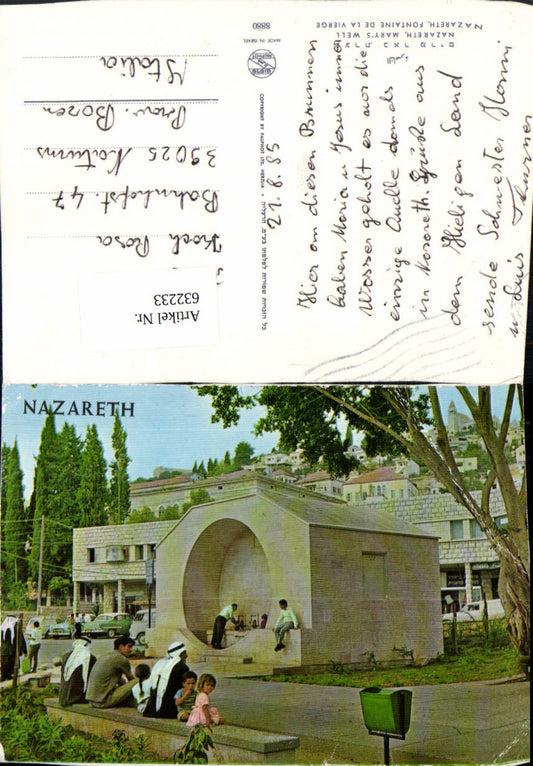 NAZARETH, MARY'S WELL
NAZARETH, FONTAINE DE LA VIERGE
8880
MADE IN ISRAEL
PALPHOT
COPYRIGHT BY PALPHOT LTD. HERZLIA
21. 9. 85
Hier an diesen Brunnen
haben Maria u Jesus immer
Wasser geholt es war die
einzige Quelle damals
in Nazareth. Grüße aus
dem Heiligen Land
sende Schwester Hanni
Koch Rosa
Bahnhofst. 47
39025 Naturns
Prov. Bozen
Italia
Artikel Nr.
632233
NAZARETH